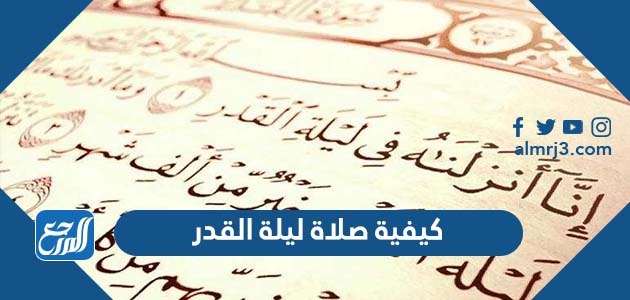 سُورَةُ
بِسْمِ
إِنَّا أَنزَلْنَٰهُ فِي لَيْلَةِ ٱلْقَدْرِ ١ وَمَا أَدْرَىٰكَ
خَيْرٌ مِّنْ أَلْفِ شَهْرٍ ٣
almrj3.com
كيفية صلاة ليلة القدر
المرجع